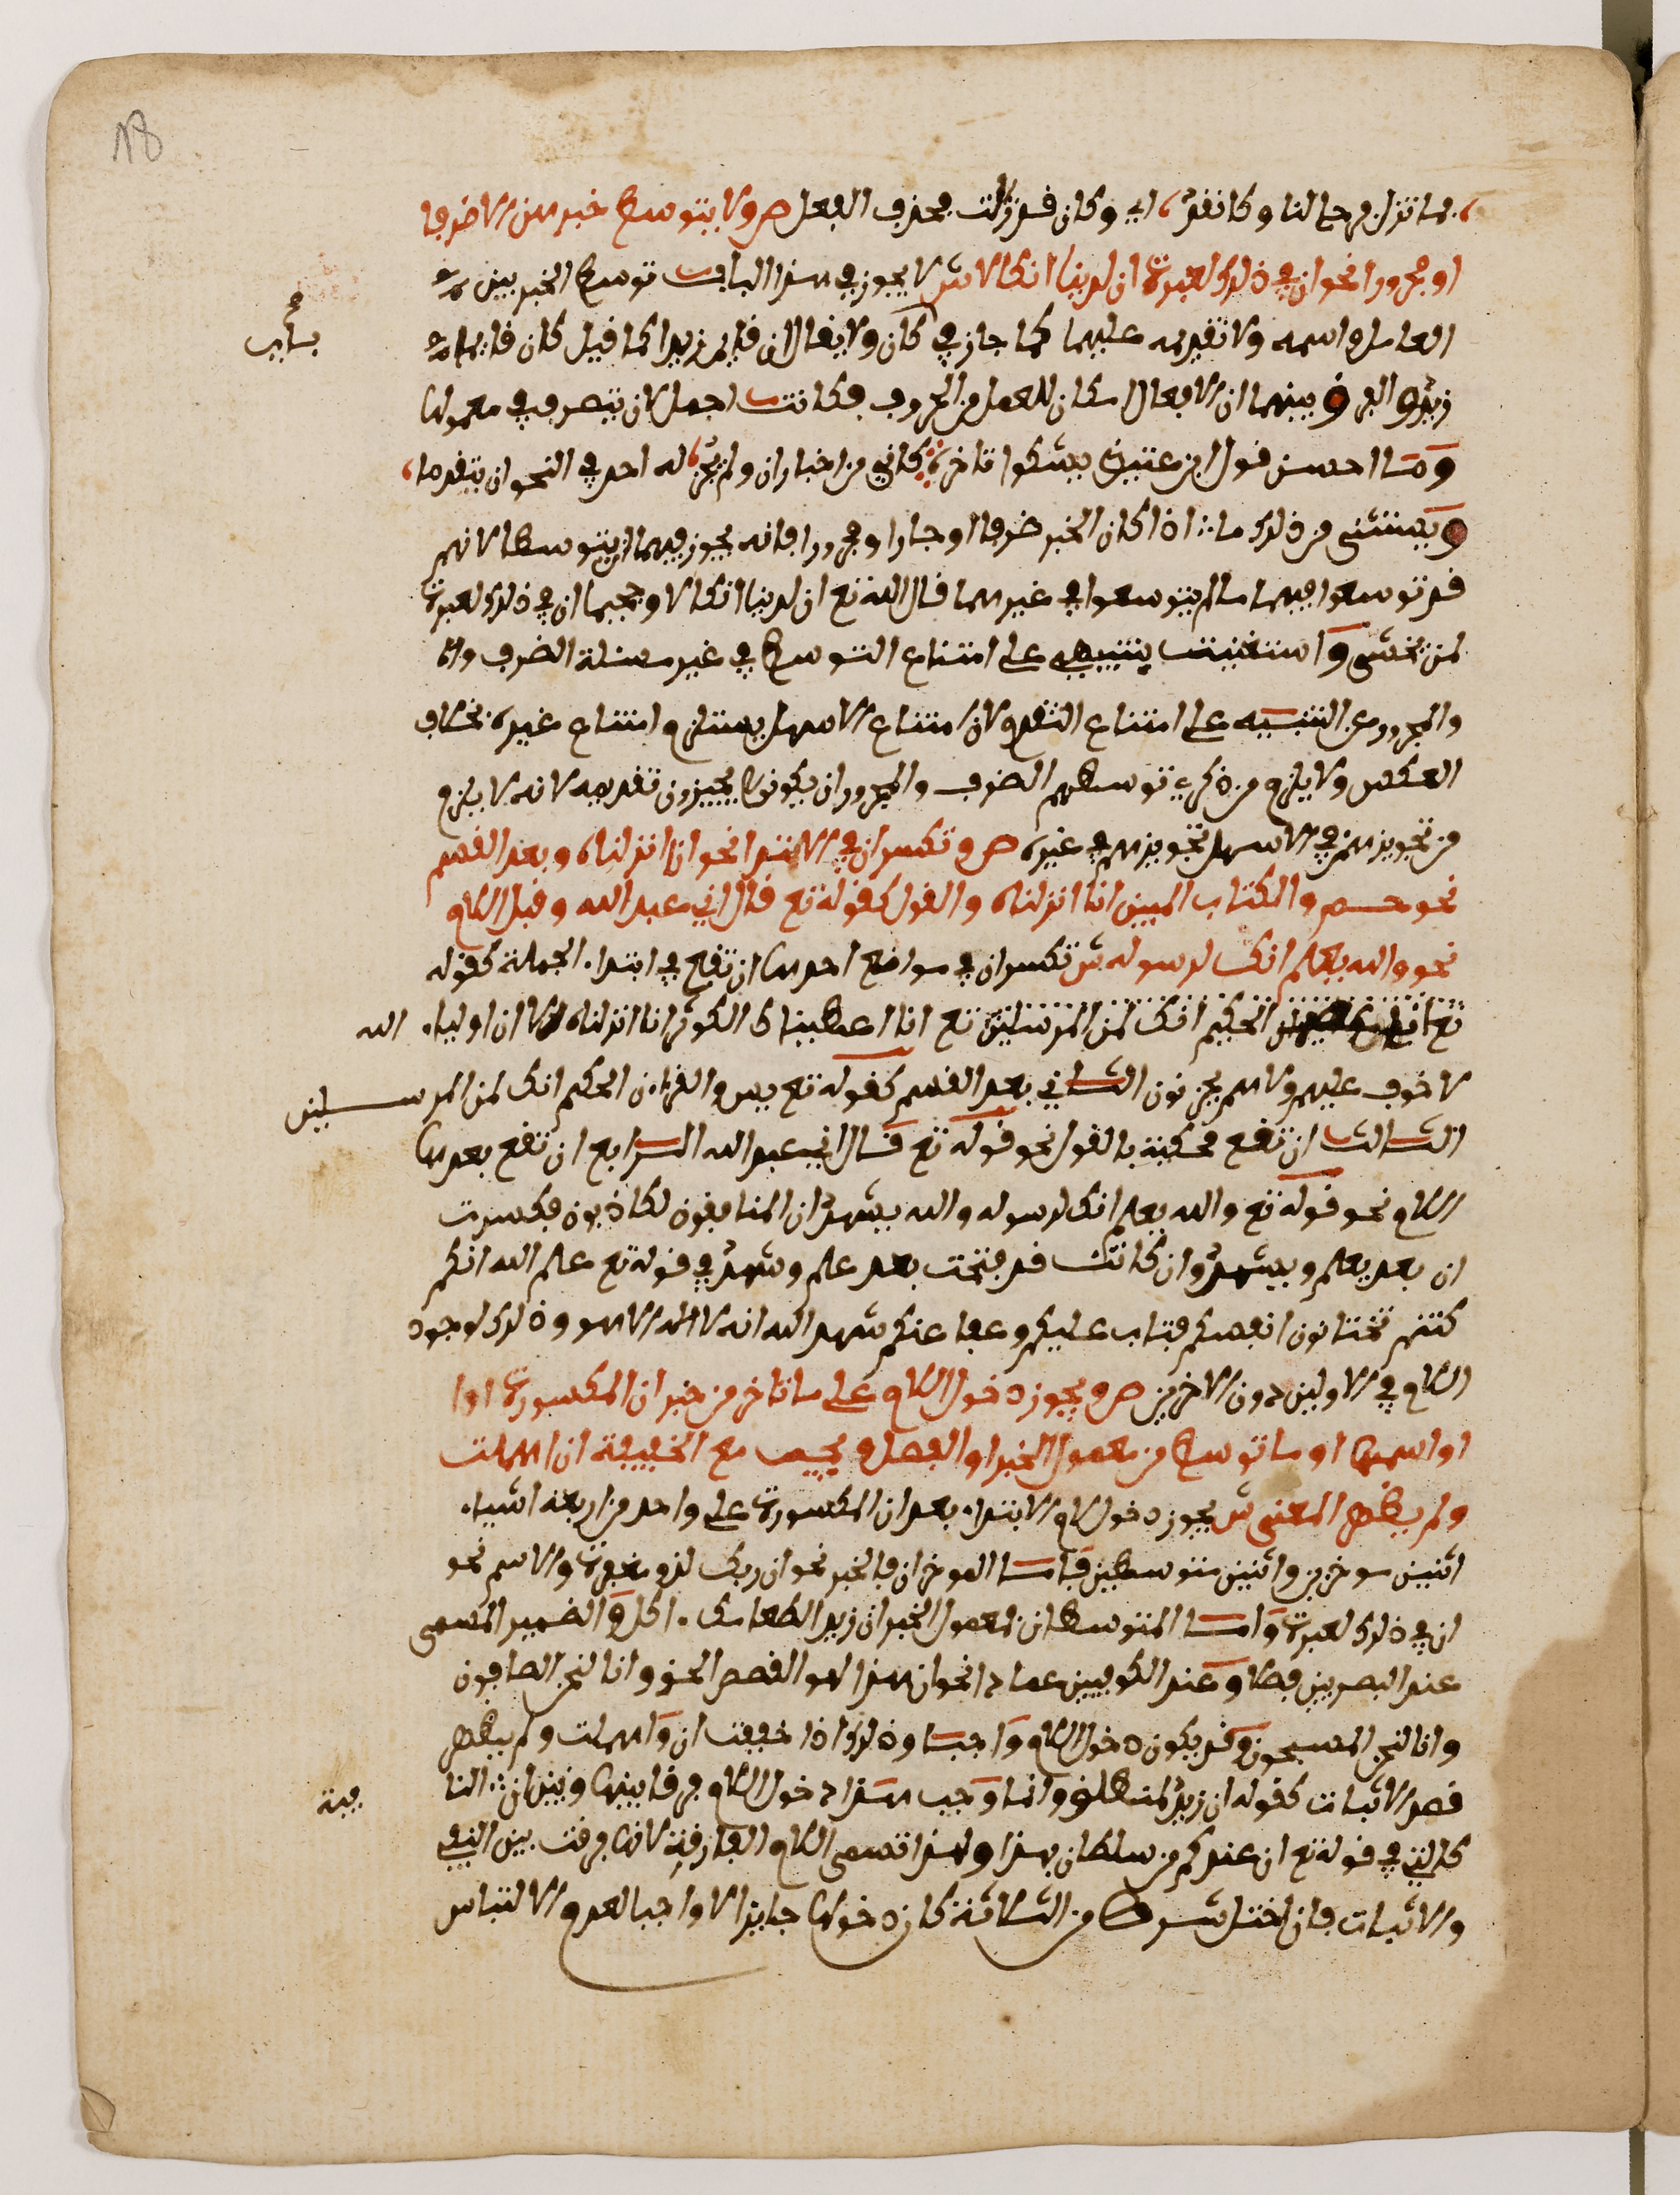 18
لما تزل برحالنا وكان قد، اي وكان قد زالت فحذف الفعل ص ولا يتوسط خبرهن الا ظرفا
او مجرورا نحو ان في ذلك لعبرة ان لدينا انكالا ش لا يجوز في هذا الباب توسط الخبر بين
العامل واسمه ولا تقديمه عليهما كما جاز في كان ولا يقال ان قايم زيدا كما قيل كان قايما
زيد والفرق بينهما ان الافعال امكن للعمل من الحروف فكانت احمل لان يتصرف في معمولها
وما احسن قول ابن عنين يشكوا تاخره كاني من اخبار ان ولم يجز، له احد في النحو ان يتقدما،
ويستثنى من ذلك ما اذا كان الخبر ظرفا او جارا ومجرورا فانه يجوز فيهما ان يتوسطا لانهم
قد توسعوا فيهما ما لم يتوسعوا في غيرهما قال الله تع ان لدينا انكالا وجحيما ان في ذلك لعبرة
لمن يخشى واستغنيت بتنبيهي على امتناع التوسط في غير مسئلة الظرف
والمجرور عن التنبيه على امتناع التقدم لان امتناع الاسهل يستلزم امتناع غيره بخلاف
العكس ولا يلزم من ذكري توسطهم الظرف والمجرور ان يكونوا يجيزون تقديمه لانه لا يلزم
من تجويزهم في الاسهل تجويزهم في غيره ص وتكسر ان في الابتدا نحو انا انزلناه وبعد القسم
نحو حم والكتاب المبين انا انزلناه والقول كقوله تع قال اني عبد الله وقبل اللام
نحو والله يعلم انك لرسوله ش تكسر ان في مواضع احدها ان تقع في ابتداء الجملة كقوله
تع الحكيم انك لمن المرسلين تع انا اعطيناك الكوثر انا انزلناه الا ان اولياء الله
لا خوف عليهم ولا هم يحزنون الثاني بعد القسم كقوله تع يس والقرءان الحكيم انك لمن المرسلين
الثالث ان تقع محكية بالقول نحو قوله تع قال اني عبد الله الرابع ان تقع بعدها
اللام نحو قوله تع والله يعلم انك لرسوله والله يشهد ان المنافقون لكاذبون فكسرت
ان بعد يعلم ويشهد وان كانت قد فتحت بعد علم وشهد في قوله تع علم الله انكم
كنتم تختانون انفسكم فتاب عليكم وعفا عنكم شهد الله انه لا اله الا هو وذلك لوجود
اللام في الاولين دون الاخرين ص ويجوز دخول اللام على ما تاخر من خبر ان المكسورة اوا
او اسمها او ما توسط من معمول الخبر او الفصل ويجب مع المخففة ان اهملت
ولم يظهر المعنى ش يجوز دخول لام الابتداء بعد ان المكسورة على واحد من اربعة اشياء
اثنين موخرين واثنين متوسطين فاما الموخران فالخبر نحو ان ربك لذو مغفرة والاسم نحو
ان في ذلك لعبرة واما المتوسطان فمعمول الخبر ان زيدا لطعامك ءاكل والضمير المسمى
عند البصريين فصلا وعند الكوفيين عمادا نحو ان هذا لهو القصص الحق وانا لنحن الصافون
وانا لنحن المسبحون وقد يكون دخول اللام واجبا وذلك اذا خففت ان واهملت ولم يظهر
قصد الاثبات كقوله ان زيد لمنطلق وانما وجب هذا دخول اللام فرقا بينها وبين ان النافية
كالتي في قوله تع ان عندكم من سلطان بهذا ولهذا تسمى اللام الفارقة لانها فرقت بين النفي
والاثبات فان اختل شرط من الثلاثة كان دخولها جايزا لا واجبا لعدم الالتباس